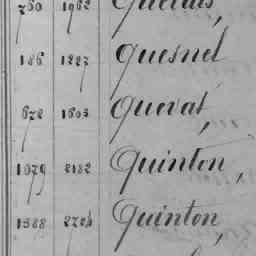 750 1962 Quetais,
186 1227 Quesnel
672 1603 Quevat,
1079 2182 Quinton,
1388 2724 Quinton,